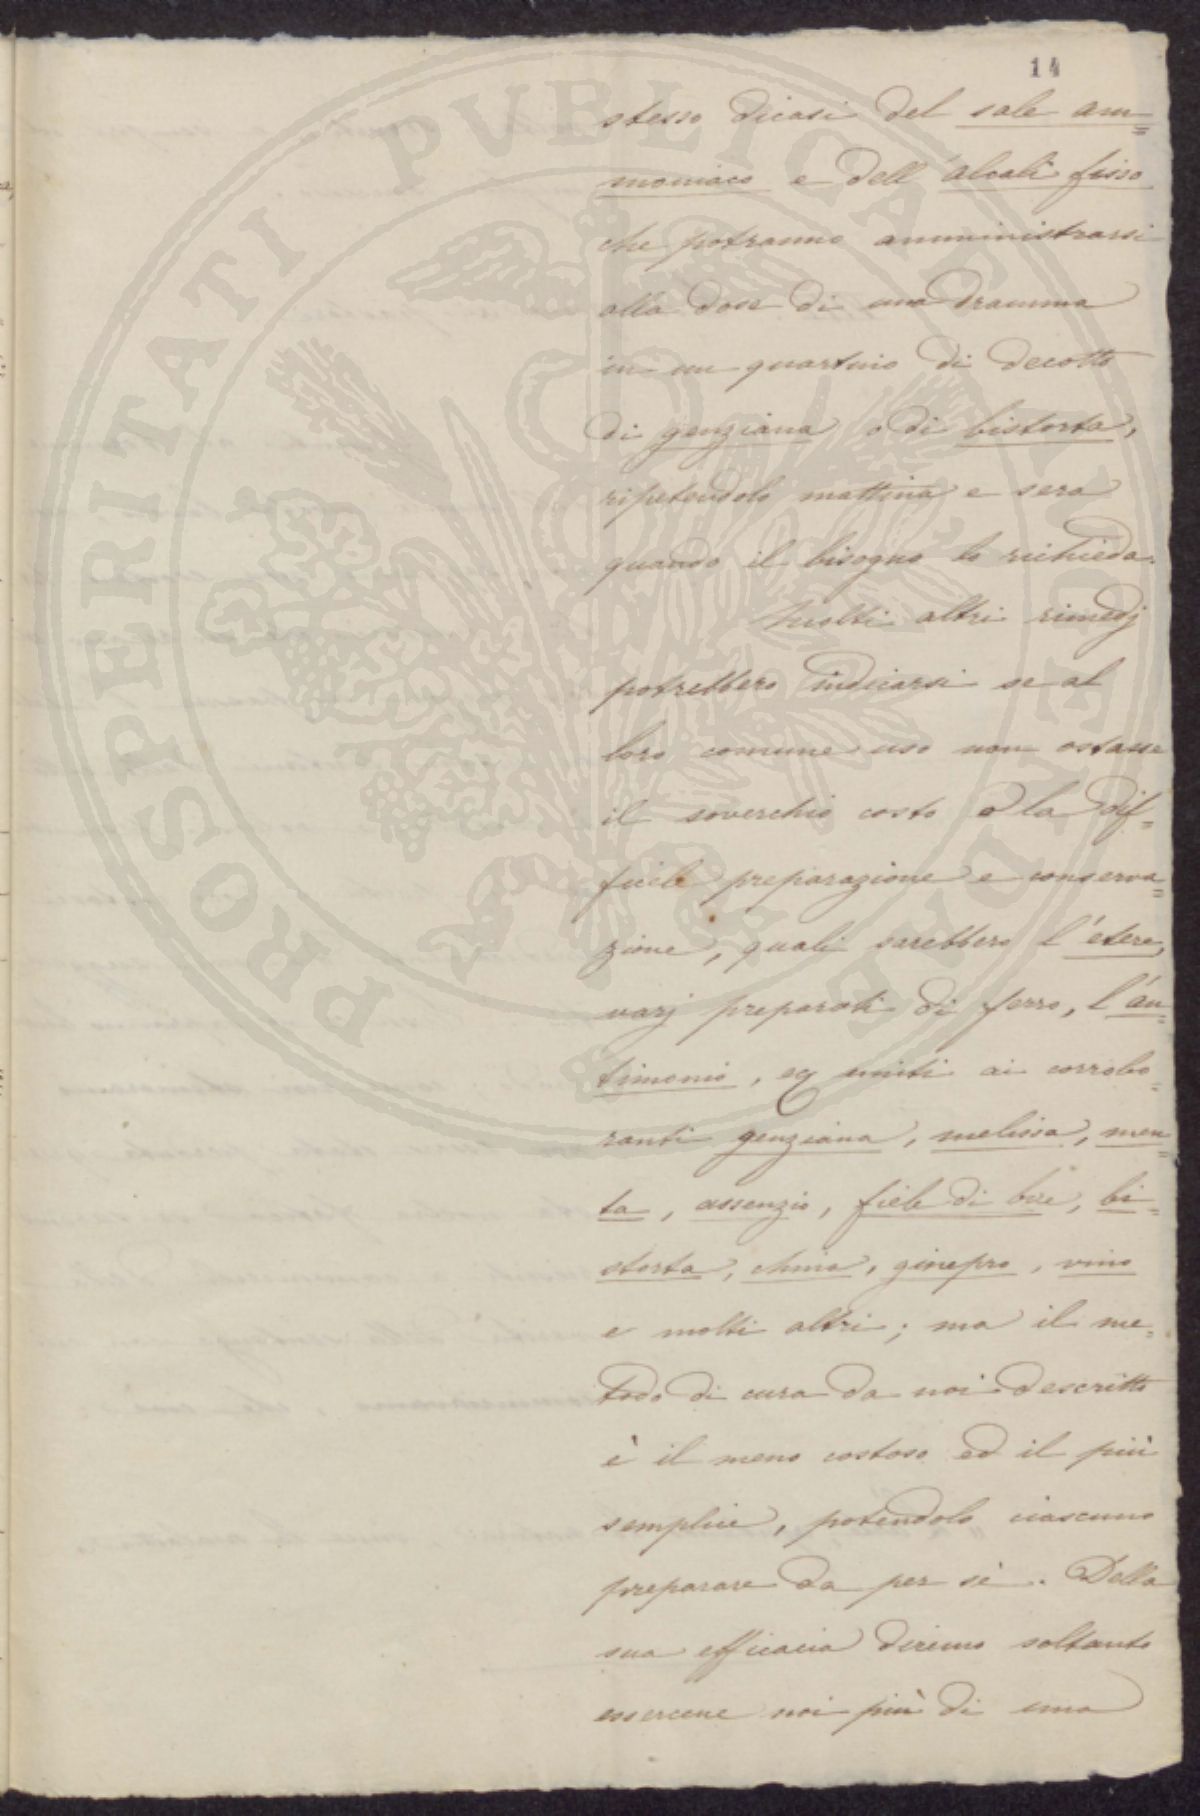 14
stesso dicasi del sale am=
moniaco e dell'alcali fisso
che potranno amministrarsi
alla dose di una dramma
in un quartino di decotto
di genziana o di bistorta,
ripetendolo mattina e sera
quando il bisogno lo richieda.
Molti altri rimedj
potrebbero indicarsi se al
loro comune uso non ostasse
il soverchio costo o la dif=
ficile preparazione e conserva=
zione, quali sarebbero l'etere,
varj preparati di ferro, l'an=
timonio, eg uniti ai corrobo=
ranti genziana, melissa, men=
ta, assenzio, fiele di bue, bi=
storta, china, ginepro, vino
e molti altri; ma il me=
todo di cura da noi descritto
è il meno costoso ed il più
semplice, potendolo ciascuno
preparare da per sè. Della
sua efficacia diremo soltanto
essercene noi più di una
PROSPERITATI PUBLICAE AUGENDAE